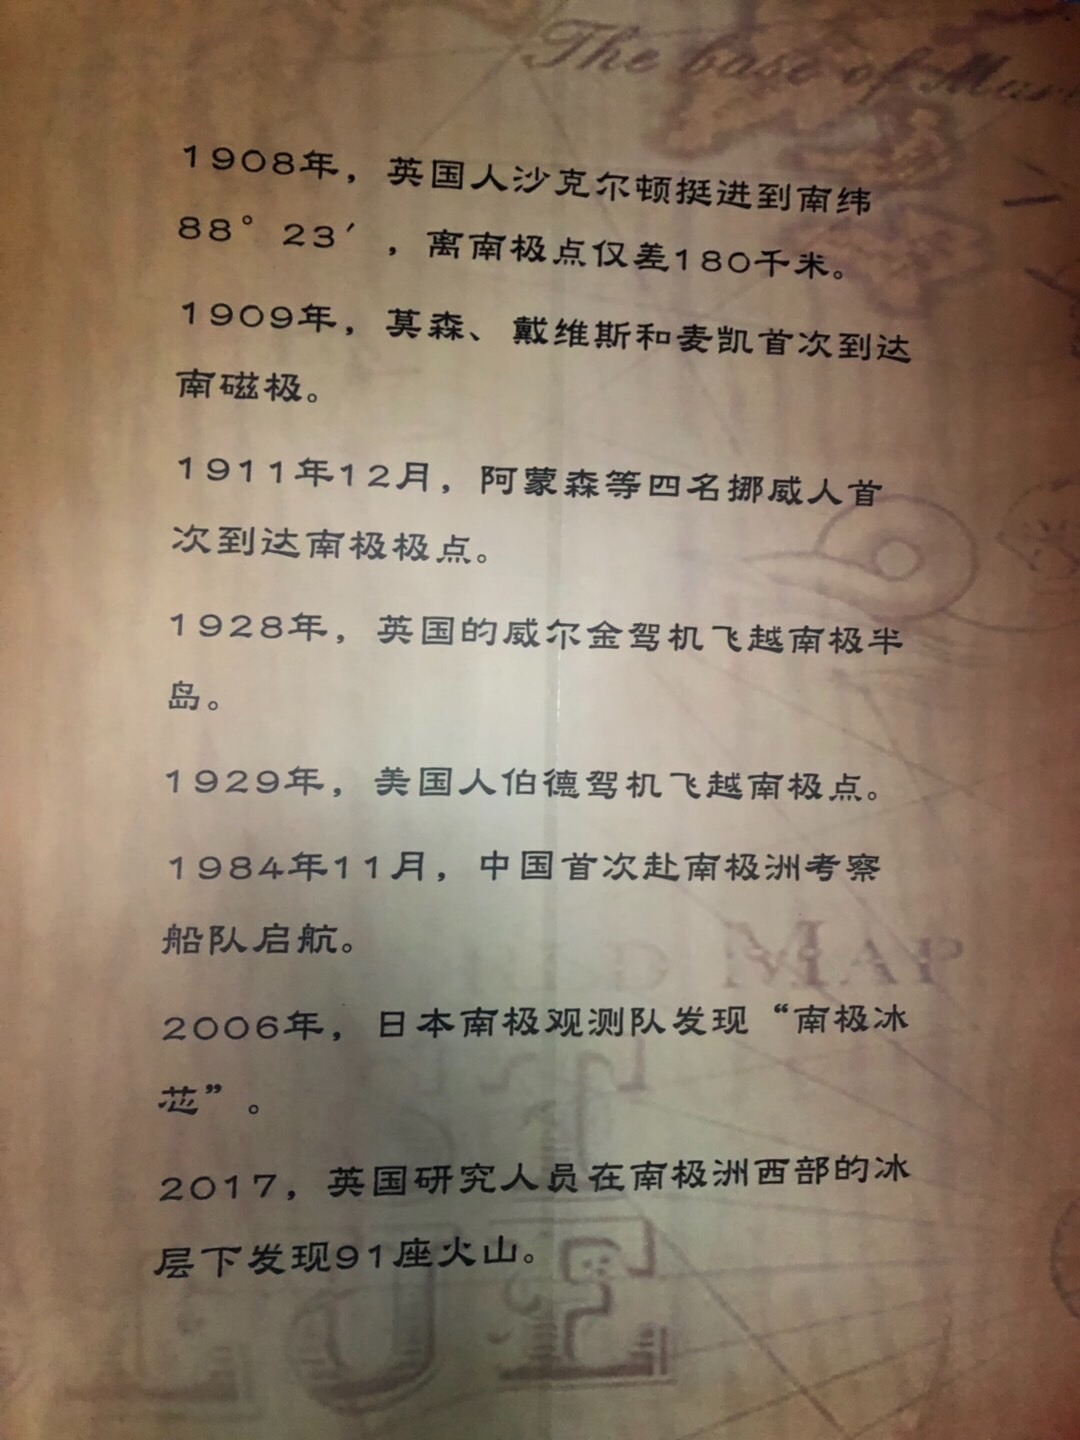 The base of Mar
1908年，英国人沙克尔顿挺进到南纬
88°23′，离南极点仅差180千米。
1909年，莫森、戴维斯和麦凯首次到达
南磁极。
1911年12月，阿蒙森等四名挪威人首
次到达南极极点。
1928年，英国的威尔金驾机飞越南极半
岛。
1929年，美国人伯德驾机飞越南极点。
1984年11月，中国首次赴南极洲考察
船队启航。
MAP
2006年，日本南极观测队发现“南极冰
芯”。
2017，英国研究人员在南极洲西部的冰
层下发现91座火山。